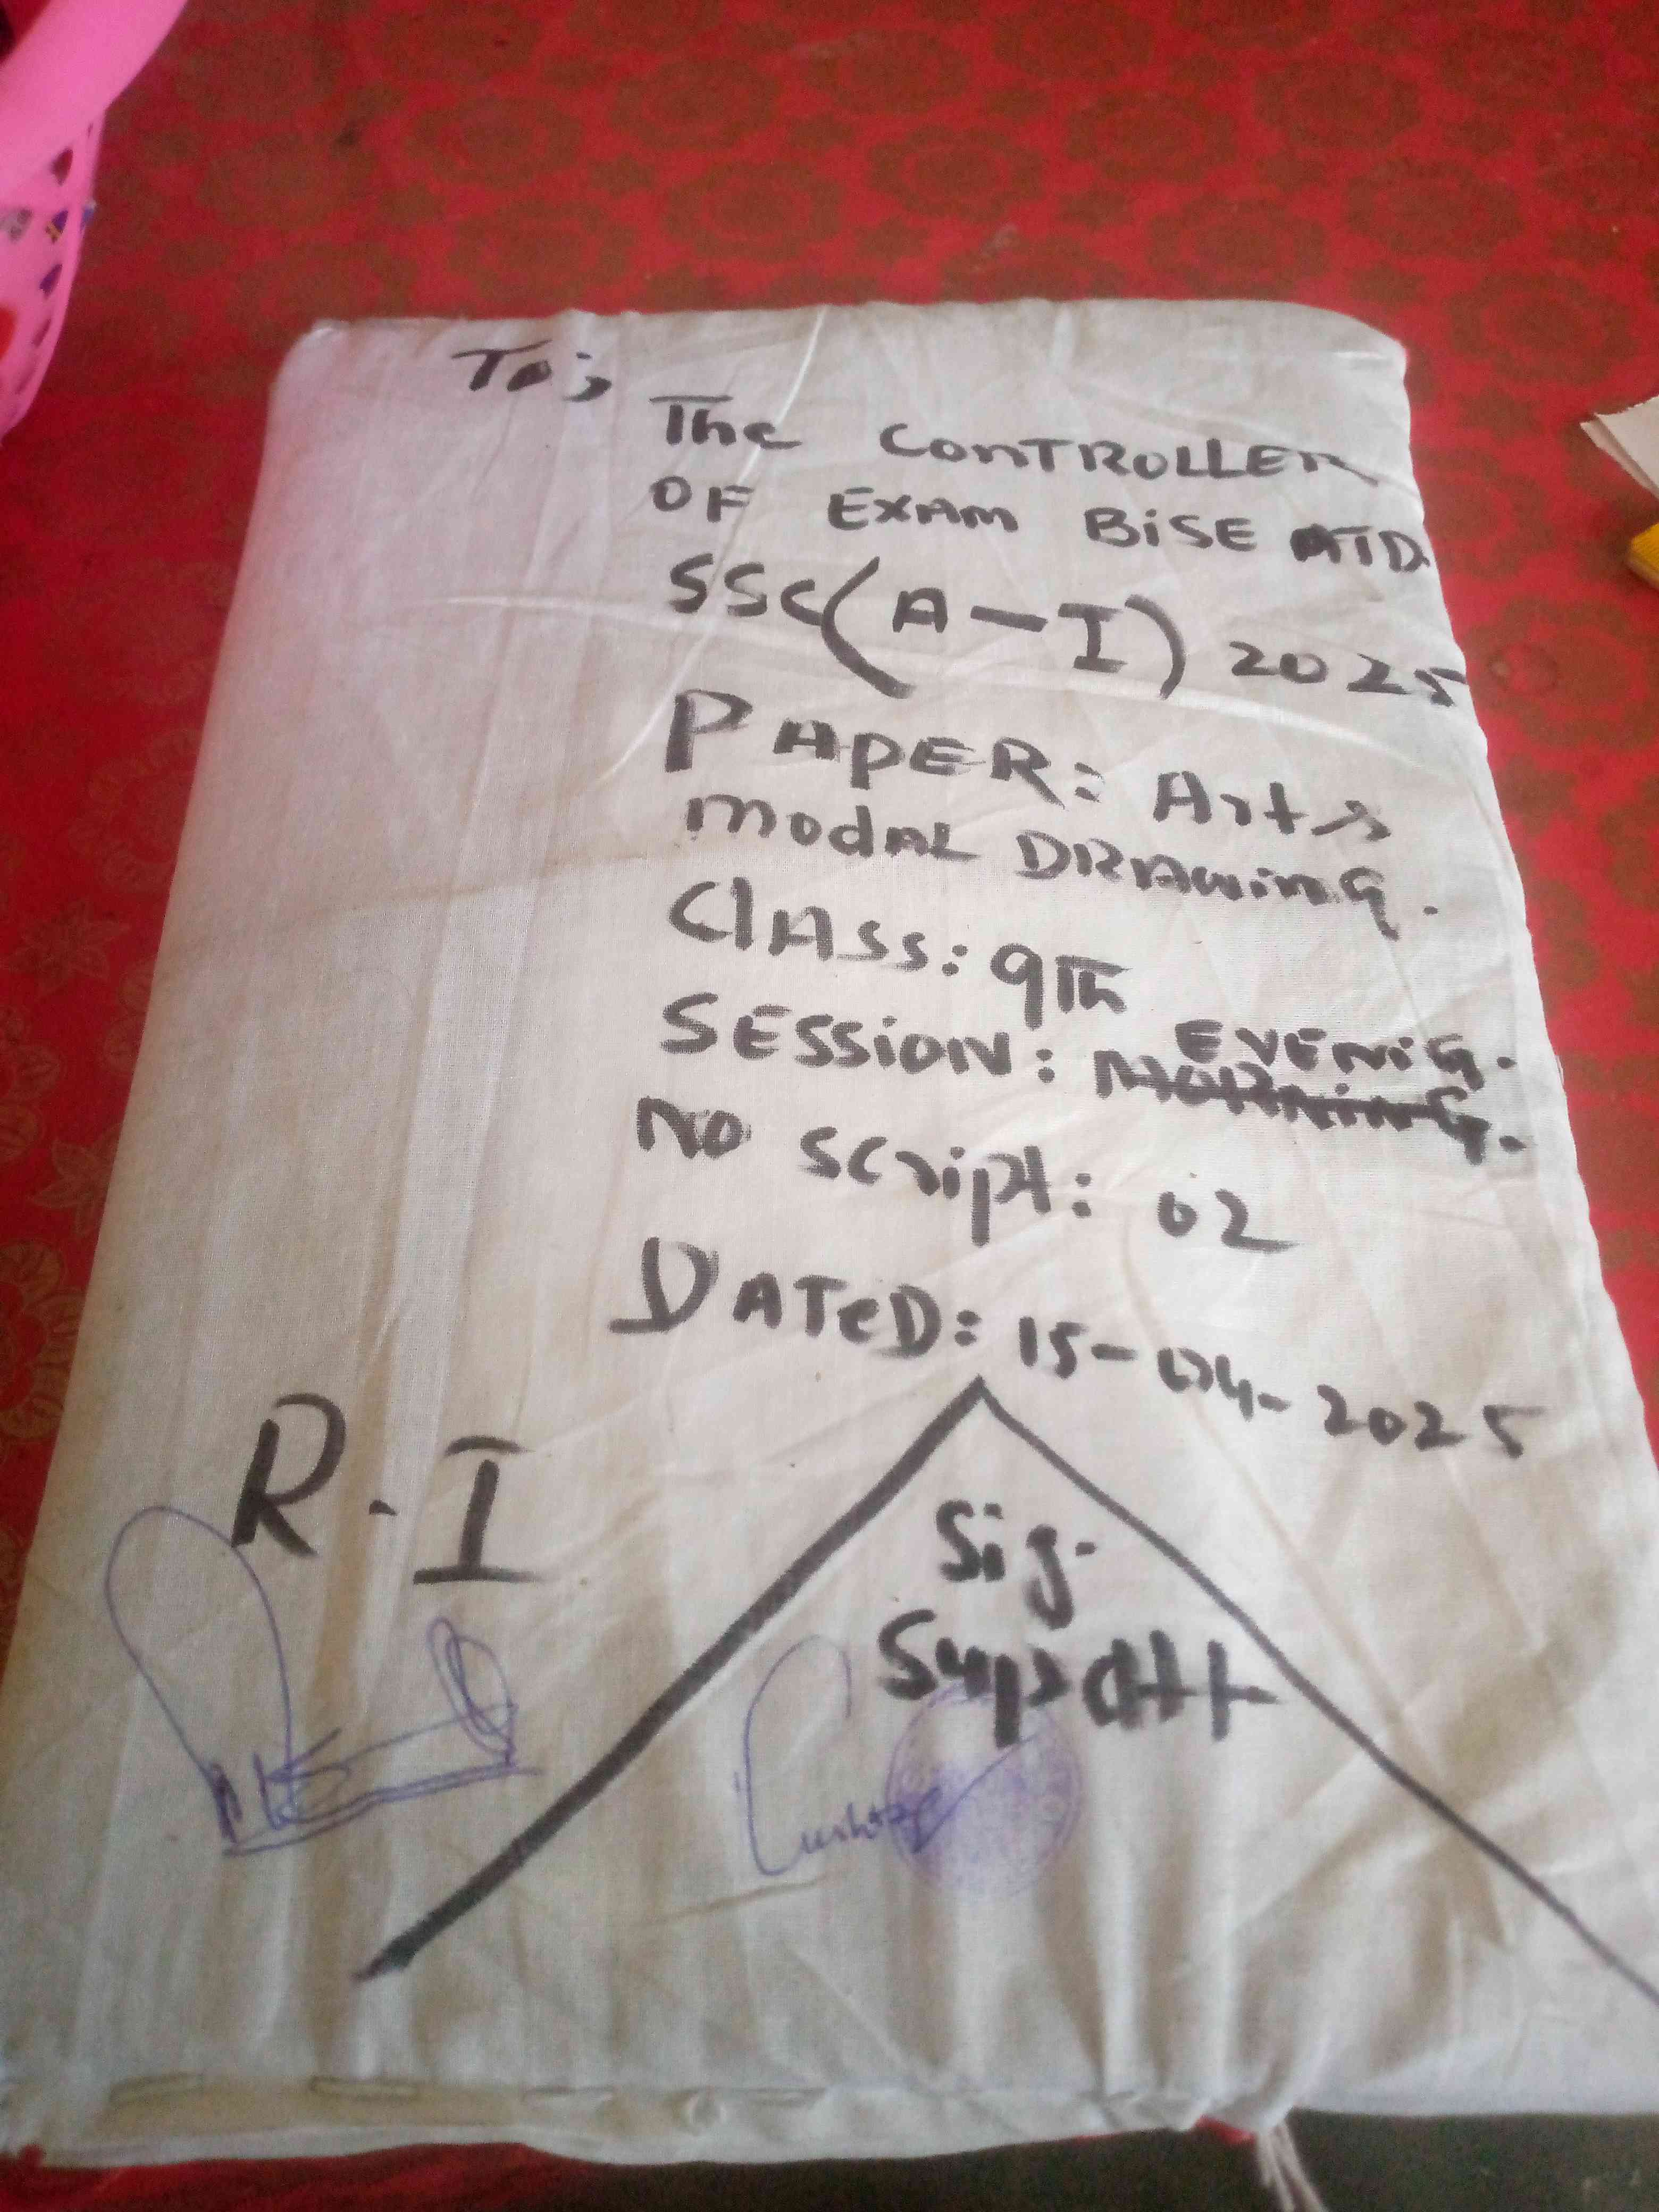 To;
The CONTROLLER
OF EXAM BISE ATD.
SSC(A-I) 2025
PAPER: Arts
modAL DRAwing.
ClAss: 9Th
EVENiG.
SESSiON: MORNinG.
NO Script: 02
DATeD: 15-04-2025
R.I
Sig.
Supdtt